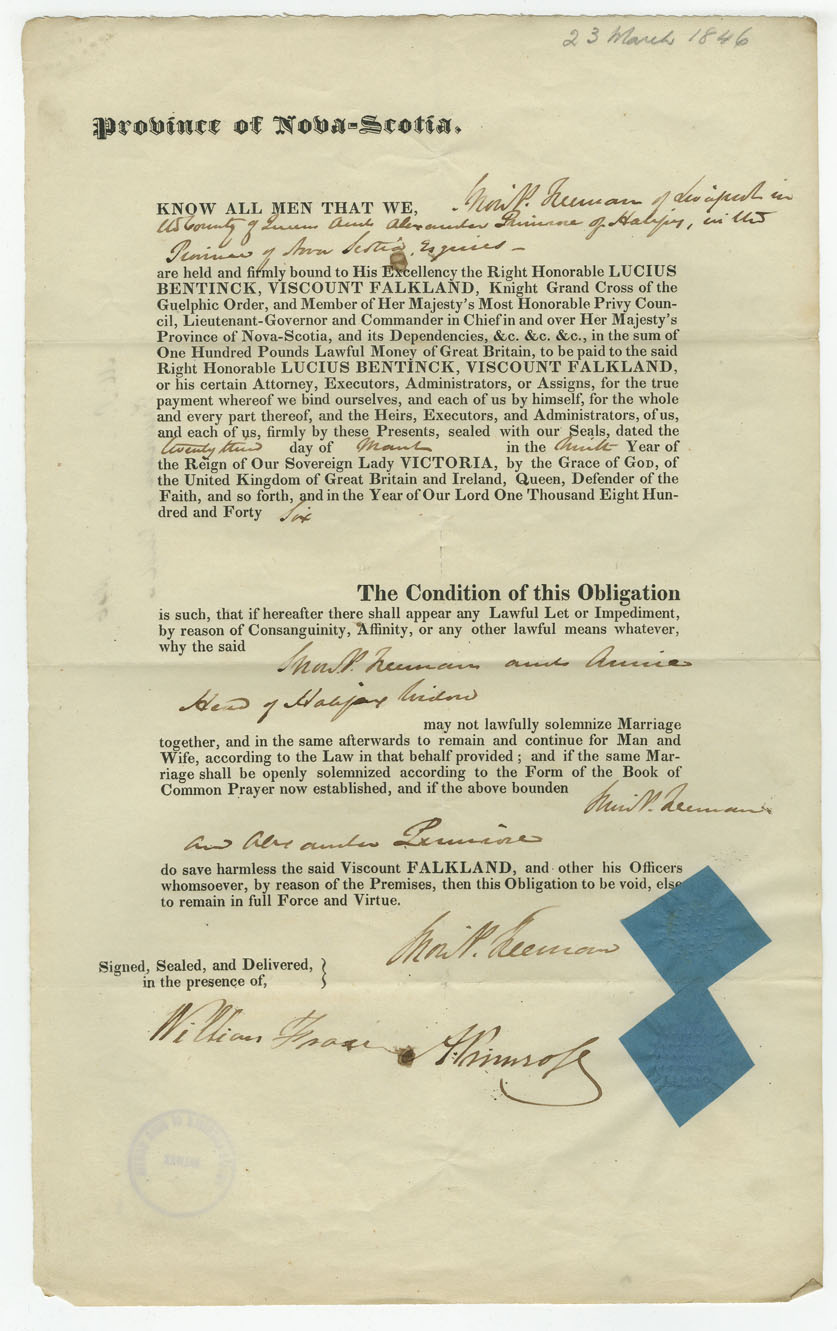 23 March 1846
Province of Nova-Scotia.
KNOW ALL MEN THAT WE, Freeman of Liverpool in
the County of Queens and Alexander Primrose of Halifax, in the
Province of Nova Scotia, Esquires —
are held and firmly bound to His Excellency the Right Honorable LUCIUS
BENTINCK, VISCOUNT FALKLAND, Knight Grand Cross of the
Guelphic Order, and Member of Her Majesty's Most Honorable Privy Coun-
cil, Lieutenant-Governor and Commander in Chief in and over Her Majesty's
Province of Nova-Scotia, and its Dependencies, &c. &c. &c., in the sum of
One Hundred Pounds Lawful Money of Great Britain, to be paid to the said
Right Honorable LUCIUS BENTINCK, VISCOUNT FALKLAND,
or his certain Attorney, Executors, Administrators, or Assigns, for the true
payment whereof we bind ourselves, and each of us by himself, for the whole
and every part thereof, and the Heirs, Executors, and Administrators, of us,
and each of us, firmly by these Presents, sealed with our Seals, dated the
twenty third day of March in the Ninth Year of
the Reign of Our Sovereign Lady VICTORIA, by the Grace of GOD, of
the United Kingdom of Great Britain and Ireland, Queen, Defender of the
Faith, and so forth, and in the Year of Our Lord One Thousand Eight Hun-
dred and Forty Six
The Condition of this Obligation
is such, that if hereafter there shall appear any Lawful Let or Impediment,
by reason of Consanguinity, Affinity, or any other lawful means whatever,
why the said
Freeman and Annie
Head of Halifax Widow
may not lawfully solemnize Marriage
together, and in the same afterwards to remain and continue for Man and
Wife, according to the Law in that behalf provided ; and if the same Mar-
riage shall be openly solemnized according to the Form of the Book of
Common Prayer now established, and if the above bounden
Freeman
and Alexander Primrose
do save harmless the said Viscount FALKLAND, and other his Officers
whomsoever, by reason of the Premises, then this Obligation to be void, else
to remain in full Force and Virtue.
Freeman
Signed, Sealed, and Delivered, }
in the presence of,
William Fraser A Primrose